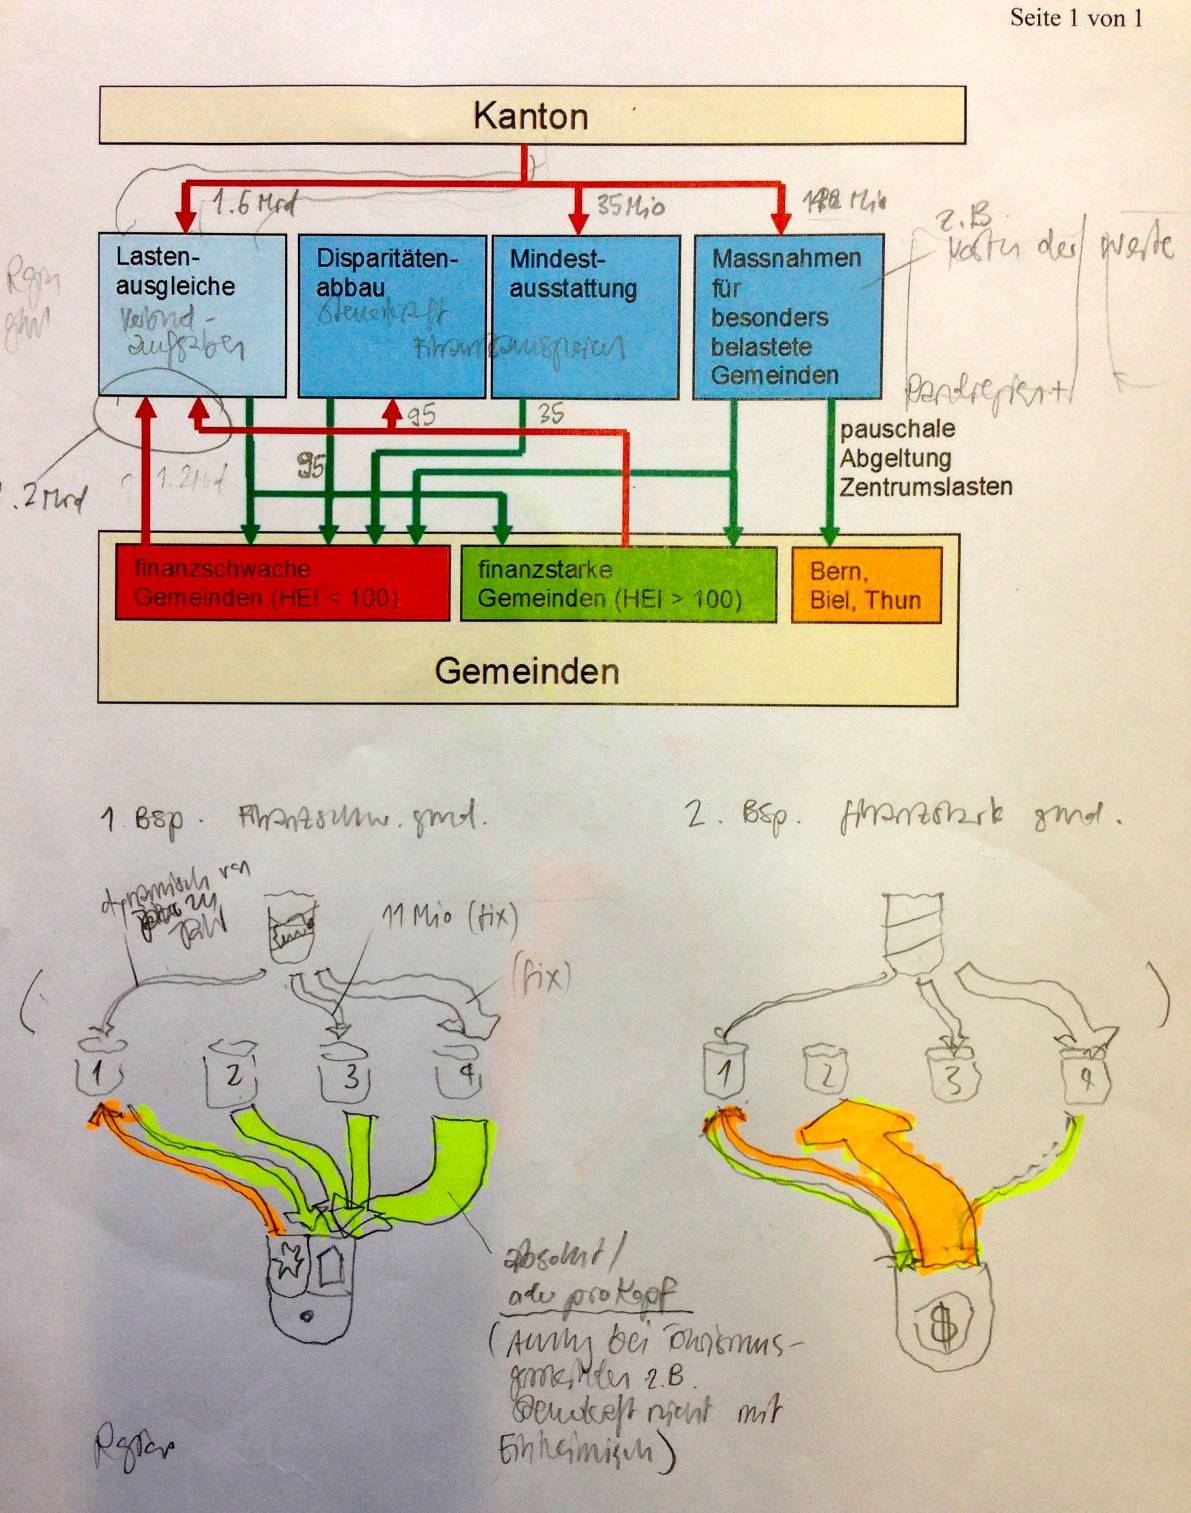 Seite 1 von 1
Kanton
1.6 Mrd
35 Mio
Mio
z.B
Kosten der
Lasten-
ausgleiche
Verbund-
aufgaben
Disparitäten-
abbau
Steuerkraft
Finanzausgleich
Mindest-
ausstattung
Massnahmen
für
besonders
belastete
Gemeinden
95
35
pauschale
Abgeltung
Zentrumslasten
95
1.2 Mrd
.2 Mrd
finanzschwache
Gemeinden (HEI < 100)
finanzstarke
Gemeinden (HEI > 100)
Bern,
Biel, Thun
Gemeinden
1. Bsp. Finanzschw. gmd.
2. Bsp. finanzstark gmd.
dynamisch von
zu
Jahr
11 Mio (fix)
(fix)
1
2
3
4
1
2
3
4
absolut/
oder pro Kopf
(Achtung bei Tourismus-
z.B.
nicht mit
Einheimisch)
$